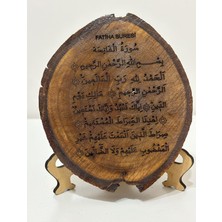 FATİHA SURESİ
سُورَةُ الْفَاتِحَةِ
بِسْمِ اللَّهِ الرَّحْمَٰنِ الرَّحِيمِ
الْحَمْدُ لِلَّهِ رَبِّ الْعَالَمِينَ
الرَّحْمَٰنِ الرَّحِيمِ مَالِكِ يَوْمِ
الدِّينِ إِيَّاكَ نَعْبُدُ وَإِيَّاكَ نَسْتَعِينُ
اِهْدِنَا الصِّرَاطَ الْمُسْتَقِيمَ
صِرَاطَ الَّذِينَ أَنْعَمْتَ عَلَيْهِمْ غَيْرِ
الْمَغْضُوبِ عَلَيْهِمْ وَلَا الضَّالِّينَ